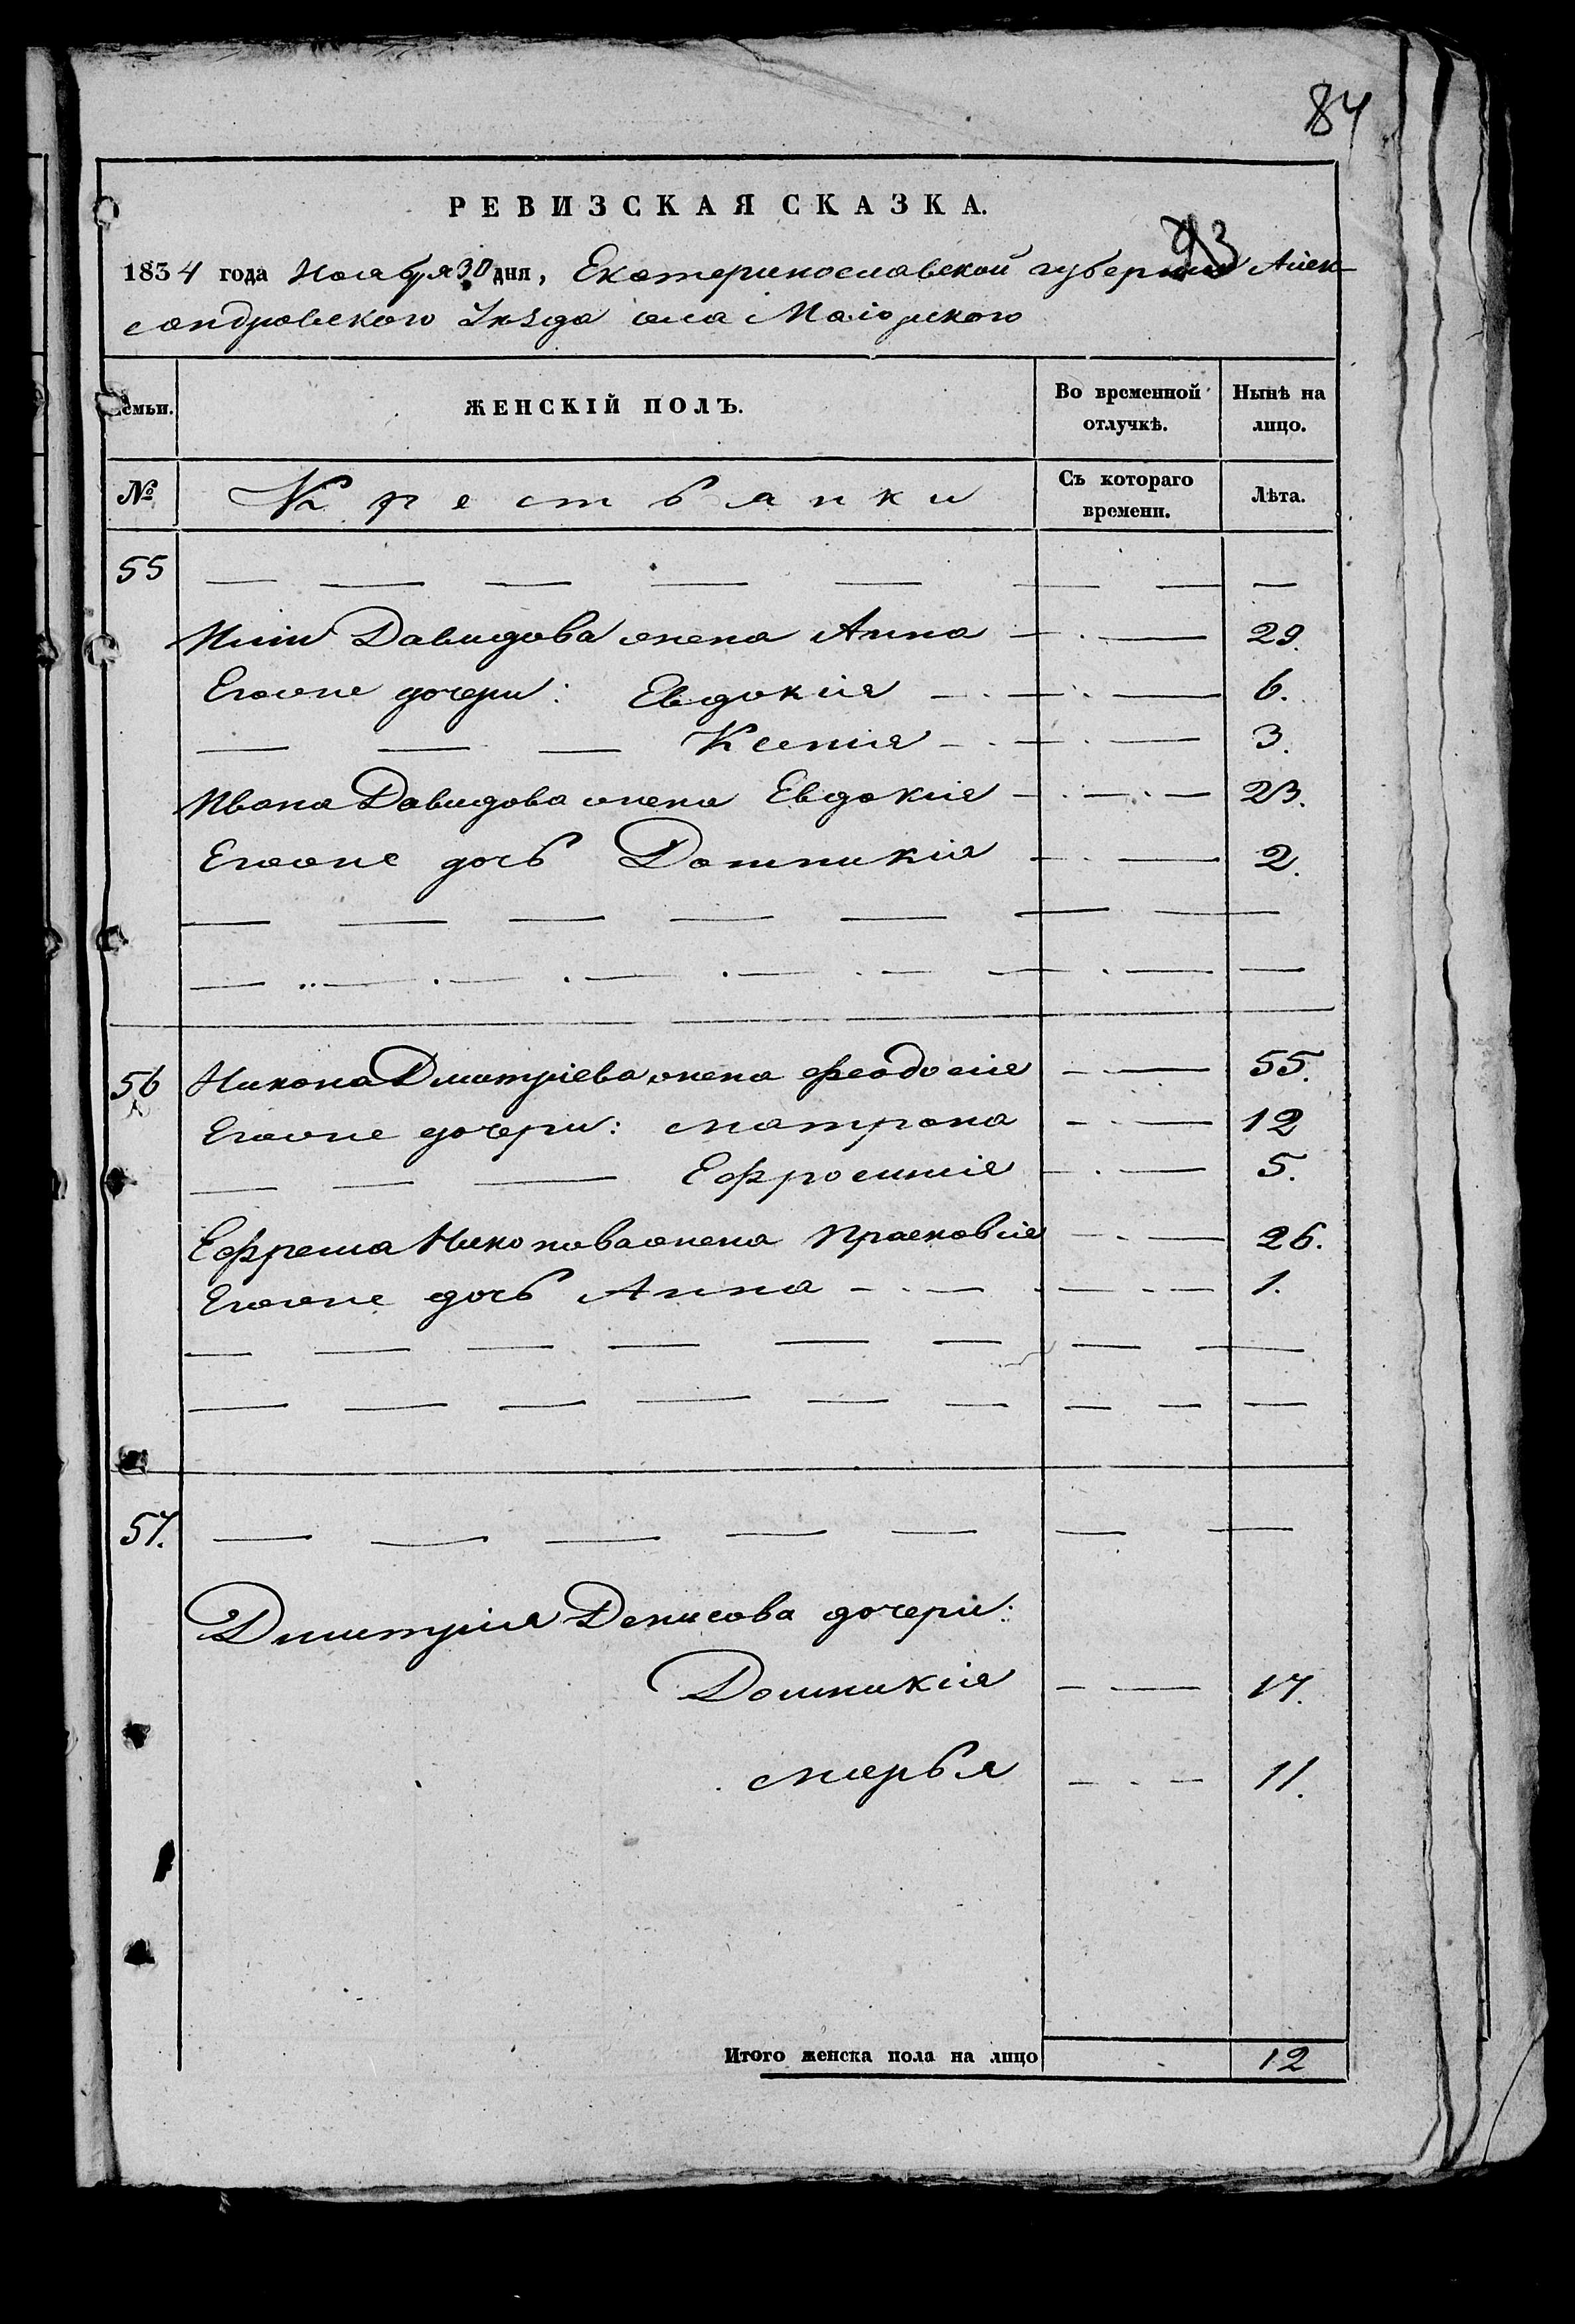 84
РЕВИЗСКАЯ СКАЗКА.
93
1834 года Ноября 30 дня, Екатеринославской губернии Алек-
сандровского Уѣзда села Маіорского
семьи. ЖЕНСКІЙ ПОЛЪ. Во временной отлучкѣ. Нынѣ на лицо.
№ Крестьянки Съ котораго времени. Лѣта.
55 — — — — — — — —
Давидова жена Анна — . — 29.
Егоже дочери: Евдокія — . — . — 6.
— — — Ксенія — . — . — 3.
Ивана Давидова жена Евдокія — . — . — 23.
Егоже дочь Домникія — . — 2.
— — — — — — —
— .. — . — . — . — . — — . — —
56 Никона Дмитріева жена Феодосія — . — 55.
Егоже дочери: Матрона — . — 12
— — — Ефросинія — . — 5.
Ефрема Никонова жена Прасковія — . — 26.
Егоже дочь Анна — . — . — . — 1.
— — — — — — — —
— — — — — — — — —
57. — — — — — — —
Дмитрія Денисова дочери:
Домникія — . — 17.
Марья — . — 11.
Итого женска пола на лицо 12